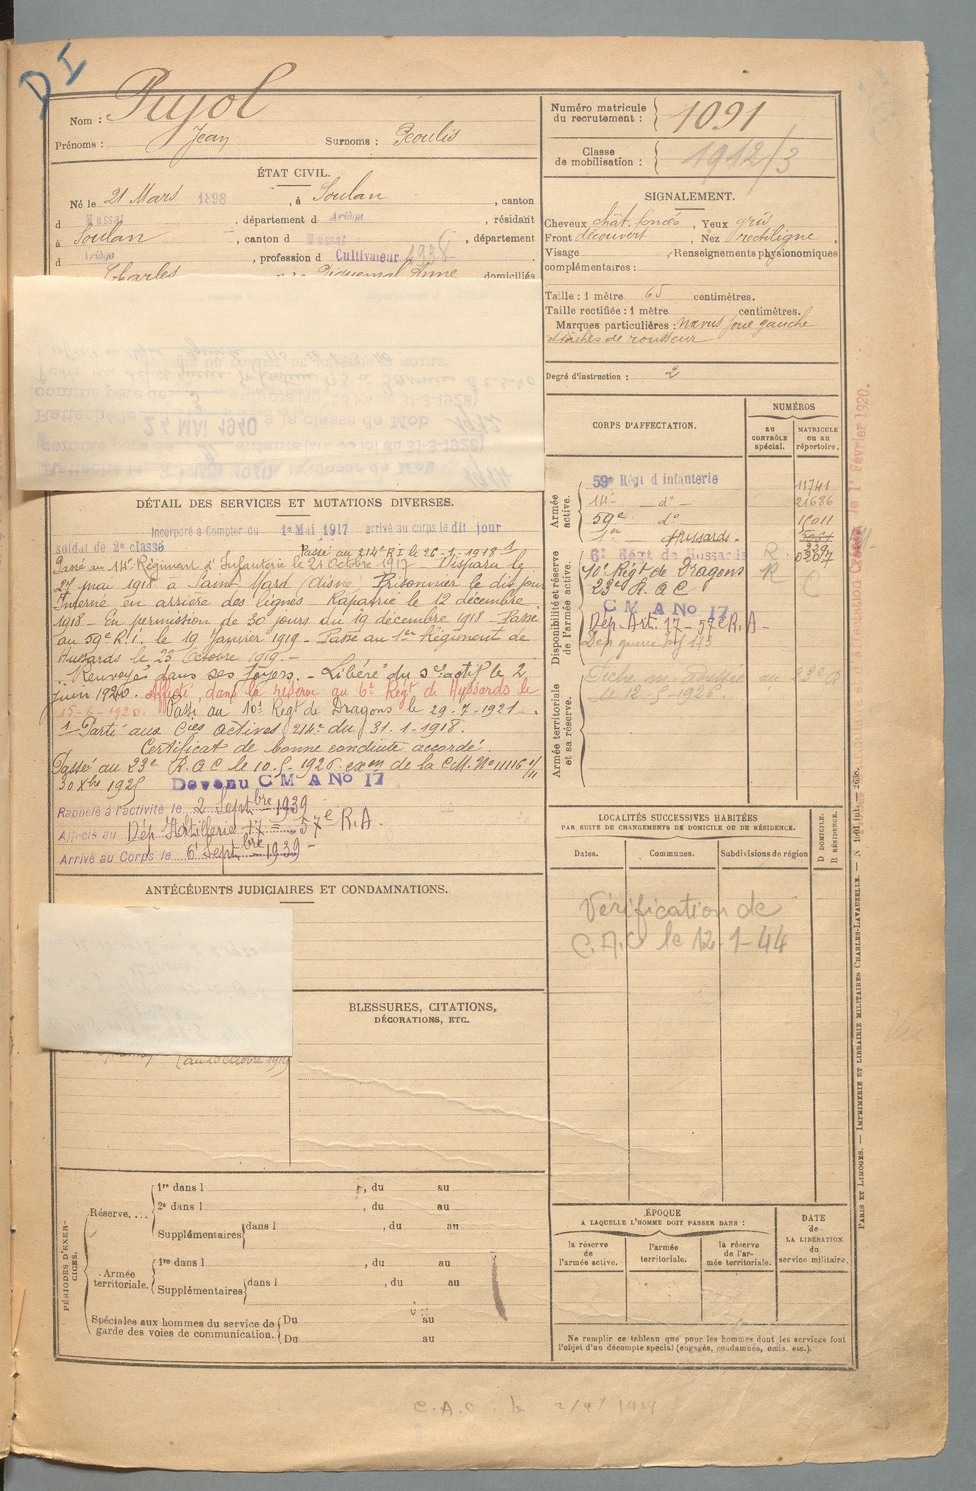 D I
Nom : Pujol
Prénoms : Jean Surnoms : Peoulis
Numéro matricule du recrutement : 1091
Classe de mobilisation : 1912/3
ÉTAT CIVIL.
Né le 21 Mars 1898, à Soulan, canton
d Massat, département d Ariège, résidant
à Soulan, canton d Massat, département
d Ariège, profession d Cultivateur
Charles Piquemal Anne domiciliés
SIGNALEMENT.
Cheveux chât. foncés, Yeux gris
Front découvert, Nez rectiligne,
Visage Renseignements physionomiques
complémentaires :
Taille : 1 mètre 65 centimètres.
Taille rectifiée : 1 mètre centimètres.
Marques particulières : nævus joue gauche
taches de rousseur
Degré d'instruction : 2
CORPS D'AFFECTATION.
NUMÉROS
AU CONTRÔLE spécial.
MATRICULE OU AU répertoire.
Armée active.
59e Régt d'infanterie 11741
14e _ do 21686
59e do
1er Hussards.
Disponibilité et réserve de l'armée active.
6e Régt de Hussards R
10e Régt de Dragons R
23e R.A.C
C M A No 17
Dép Art. 17 - 57e R.A -
Armée territoriale et sa réserve.
Fiche m. Passée au 23e
le 12-5-1926
DÉTAIL DES SERVICES ET MUTATIONS DIVERSES.
Incorporé à Compter du 1er Mai 1917 arrivé au corps le dit jour
soldat de 2e classe Passé au 214e R I le 26-1-1918 1
Passé au 14e Régiment d'Infanterie le 21 Octobre 1917 - Disparu le
27 mai 1918 à Saint Mard Aisne Prisonnier le dit jour
Interné en arrière des lignes - Rapatrié le 12 décembre
1918 - En permission de 30 jours du 19 décembre 1918 - Passé
au 59e R.I. le 19 Janvier 1919 - Passé au 1er Régiment de
Hussards le 23 Octobre 1919. -
Renvoyé dans ses foyers. - Libéré du sce actif le 2
juin 1920. Affecté dans la réserve au 6e Régt de Hussards le
15-6-1920. Passé au 10e Regt de Dragons le 29-7-1921 -
1 Parti aux Cies actives 214e du 31.1.1918.
Certificat de bonne conduite accordé.
Passé au 23e R.A.C le 10.5-1926 exon de la C.M. No 11116 1/11
30 Xbre 1925 Devenu C M A No 17
Rappelé à l'activité le 2 Septbre 1939
Affecté au Dép. d'Artillerie 17 = 57e R.A.
Arrivé au Corps le 6 Septbre 1939 -
LOCALITÉS SUCCESSIVES HABITÉES
PAR SUITE DE CHANGEMENTS DE DOMICILE OU DE RÉSIDENCE.
Dates. Communes. Subdivisions de région
D DOMICILE. R RÉSIDENCE.
Vérification de
C.A.C le 12-1-44
ANTÉCÉDENTS JUDICIAIRES ET CONDAMNATIONS.
BLESSURES, CITATIONS,
DÉCORATIONS, ETC.
PÉRIODES D'EXERCICES.
Réserve....
1re dans l , du au
2e dans l , du au
Supplémentaires dans l , du au
Armée territoriale.
1re dans l , du au
Supplémentaires dans l , du au
Spéciales aux hommes du service de garde des voies de communication.
Du au
Du au
ÉPOQUE
A LAQUELLE L'HOMME DOIT PASSER DANS :
la réserve de l'armée active.
l'armée territoriale.
la réserve de l'armée territoriale.
DATE de LA LIBÉRATION du service militaire.
Ne remplir ce tableau que pour les hommes dont les services font
l'objet d'un décompte spécial (engagés, condamnés, omis, etc.).
PARIS ET LIMOGES. — IMPRIMERIE ET LIBRAIRIE MILITAIRES CHARLES-LAVAUZELLE.
C.A.C. le